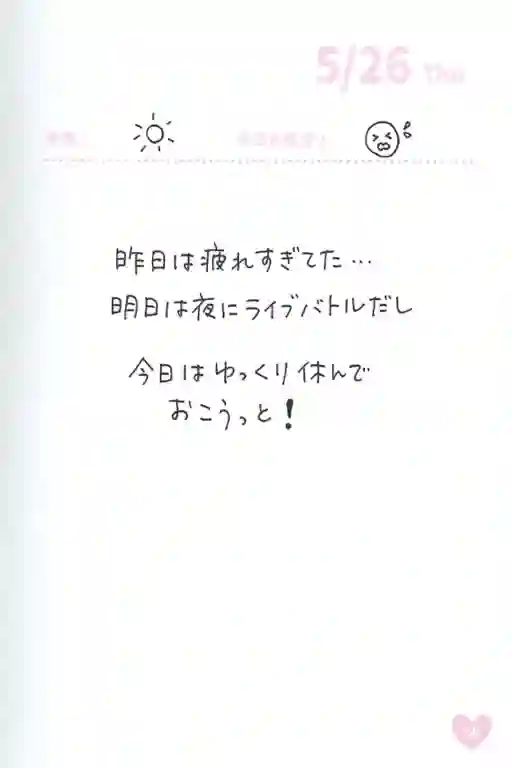 5/26 Thu
昨日は疲れすぎてた…
明日は夜にライブバトルだし
今日はゆっくり休んで
おこうっと！